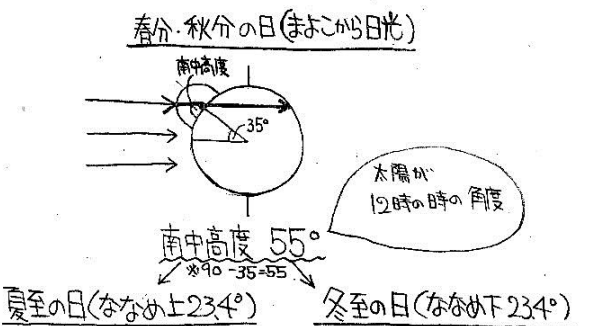 春分・秋分の日(まよこから日光)
南中高度
35°
太陽が
12時の時の角度
南中高度 55°
※90-35=55
夏至の日(ななめ上23.4°)
冬至の日(ななめ下23.4°)